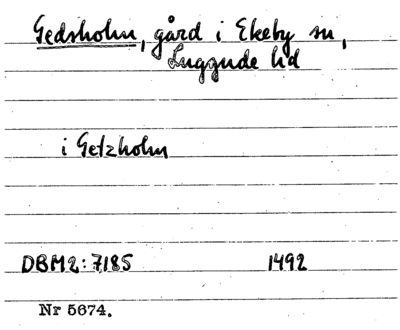 Gedsholm, gård i Ekeby sn,
Luggude hd
i Getzholm
DBM2:7185 1492
Nr 5674.